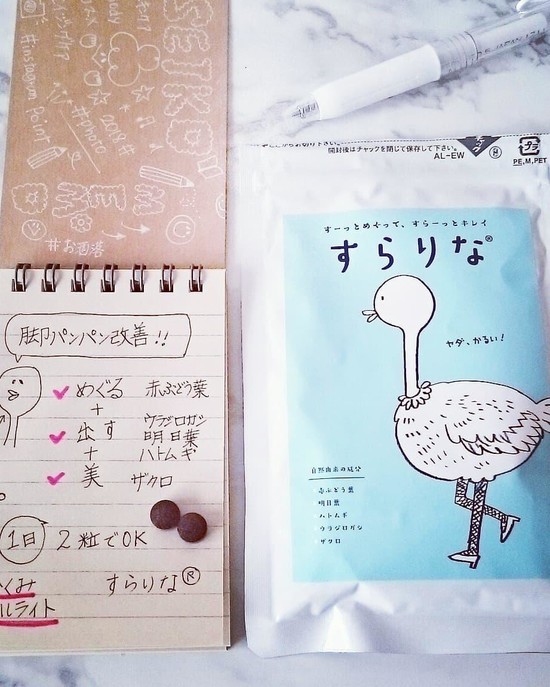 #お洒落
脚パンパン改善!!
めぐる 赤ぶどう葉
+
出す ウラジロガシ
明日葉
+
ハトムギ
美 ザクロ
1日 2粒でOK
すらりな®
くみ
ルライト
開封後はチャックを閉じて保存して下さい。
AL-EW
プラ
PE,M,PET
すーっとめぐって、すらーっとキレイ
すらりな®
ヤダ、かるい!
自然由来の成分
赤ぶどう葉
明日葉
ハトムギ
ウラジロガシ
ザクロ